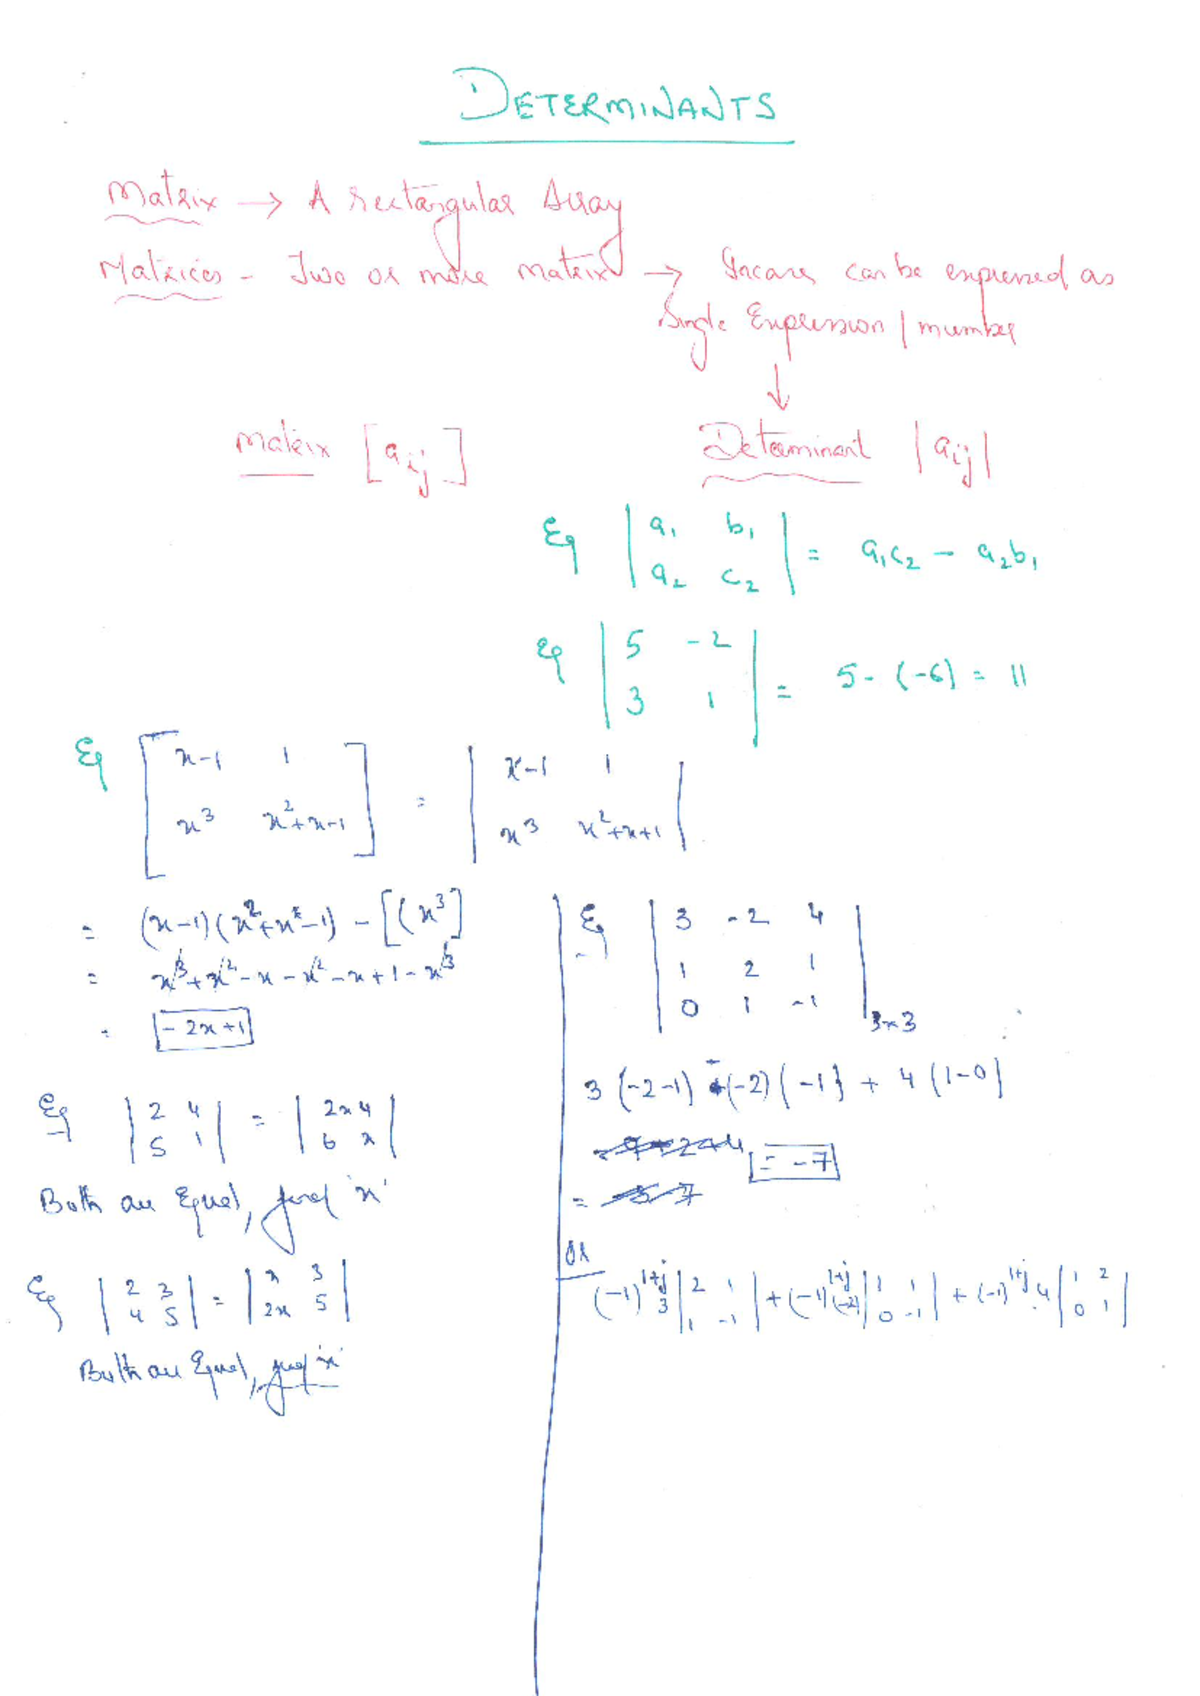 DETERMINANTS
Matrix → A rectangular Array
Matrices - Two or more matrix → Incase can be expressed as
Single Expression / number
↓
Matrix [aij]
Determinant |aij|
Eg | a1 b1 | = a1c2 - a2b1
| a2 c2 |
Eg | 5 -2 | = 5-(-6) = 11
| 3 1 |
Eg [ x-1 1 ] = | x-1 1 |
[ x³ x²+x-1 ] | x³ x²+x+1 |
= (x-1)(x²+x-1) - [(x³]
= x³+x²-x-x²-x+1-x³
= -2x+1
Eg | 2 4 | = | 2x 4 |
| 5 1 | | 6 x |
Both are Equal, find 'x'
Eg | 2 3 | = | x 3 |
| 4 5 | | 2x 5 |
Both are Equal, find 'x'
Eg | 3 -2 4 |
| 1 2 1 |
| 0 1 -1 | 3×3
3(-2-1) -(-2)(-1) + 4(1-0)
= -7
=
OR
(-1)^1+j 3 | 2 1 | + (-1)^1+j (-2) | 1 1 | + (-1)^1+j 4 | 1 2 |
| 1 -1 | | 0 -1 | | 0 1 |